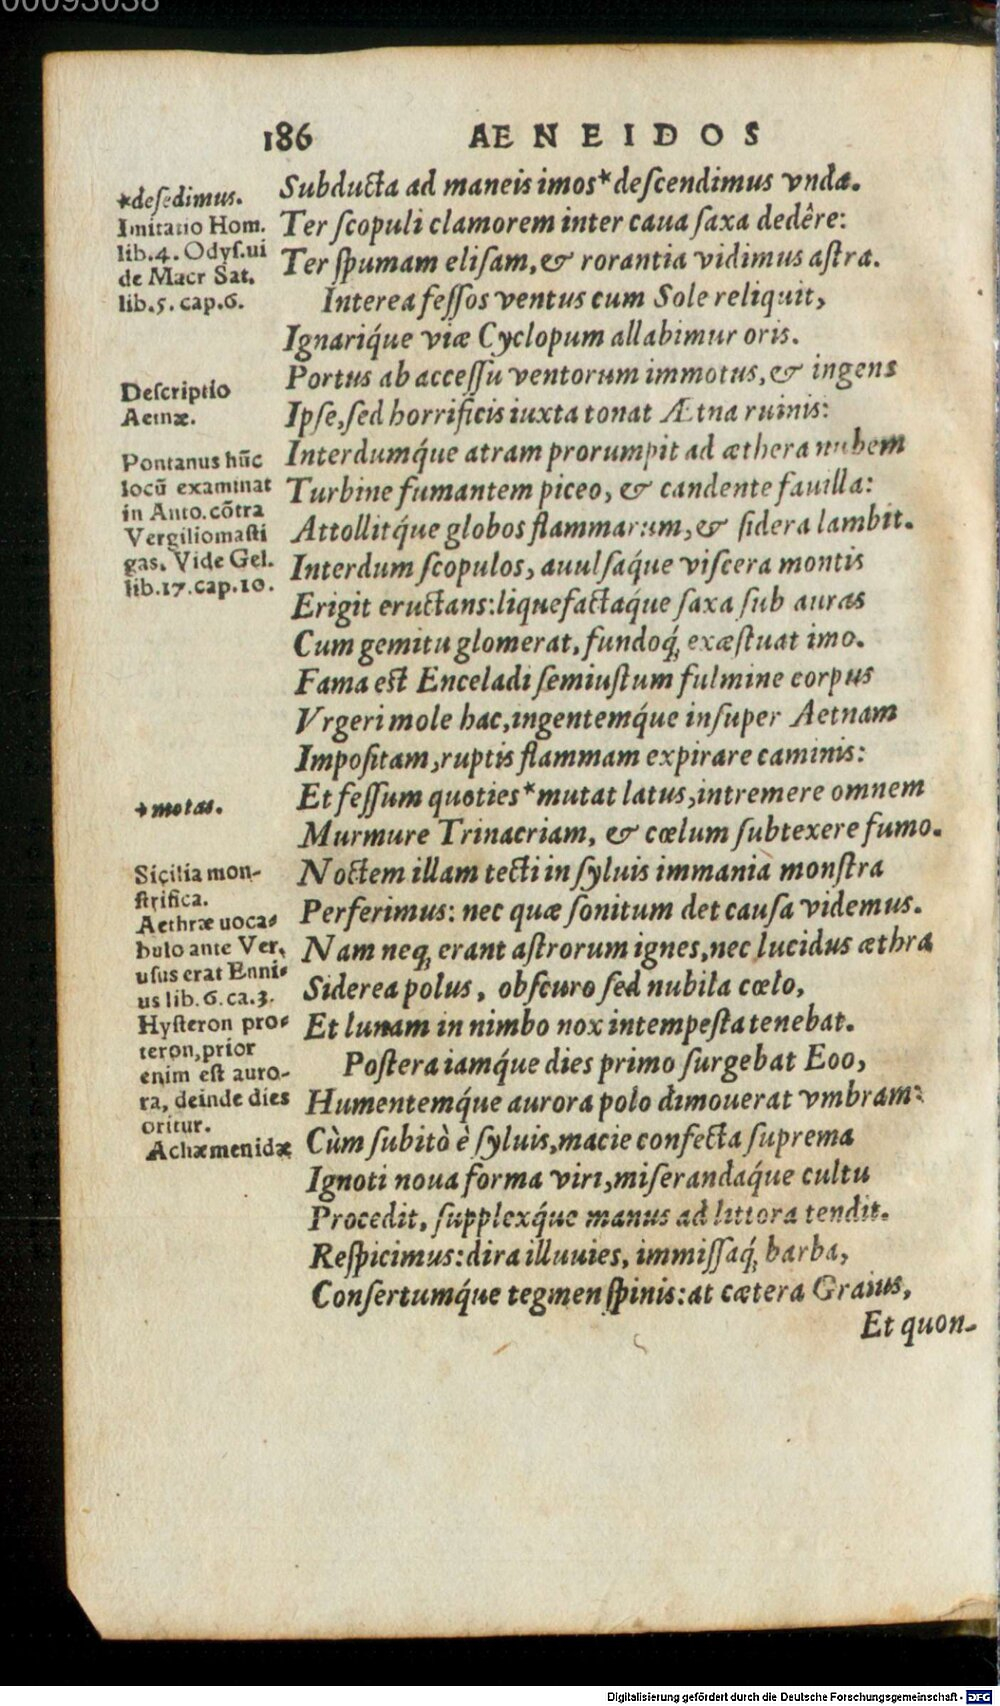 00093038
186 AENEIDOS
Subducta ad maneis imos*descendimus vnda.
Ter scopuli clamorem inter caua saxa dedêre:
Ter spumam elisam, & rorantia vidimus astra.
Interea fessos ventus cum Sole reliquit,
Ignariq́ue viæ Cyclopum allabimur oris.
Portus ab accessu ventorum immotus, & ingens
Ipse, sed horrificis iuxta tonat Ætna ruinis:
Interdumq́ue atram prorumpit ad æthera nubem
Turbine fumantem piceo, & candente fauilla:
Attollitq́ue globos flammarum, & sidera lambit.
Interdum scopulos, auulsaq́ue viscera montis
Erigit eructans: liquefactaq́ue saxa sub auras
Cum gemitu glomerat, fundoq́; exæstuat imo.
Fama est Enceladi semiustum fulmine corpus
Vrgeri mole hac, ingentemq́ue insuper Aetnam
Impositam, ruptis flammam expirare caminis:
Et fessum quoties*mutat latus, intremere omnem
Murmure Trinacriam, & cœlum subtexere fumo.
Noctem illam tecti in syluis immania monstra
Perferimus: nec quæ sonitum det causa videmus.
Nam neq; erant astrorum ignes, nec lucidus æthra
Siderea polus, obscuro sed nubila cœlo,
Et lunam in nimbo nox intempesta tenebat.
Postera iamq́ue dies primo surgebat Eoo,
Humentemq́ue aurora polo dimouerat vmbram:
Cùm subitò è syluis, macie confecta suprema
Ignoti noua forma viri, miserandaq́ue cultu
Procedit, supplexq́ue manus ad littora tendit.
Respicimus: dira illuuies, immissaq́; barba,
Consertumq́ue tegmen spinis: at cætera Graius,
Et quon-
*desedimus.
Imitatio Hom.
lib.4. Odys.ui
de Macr Sat.
lib.5. cap.6.
Descriptio
Aetnæ.
Pontanus hũc
locũ examinat
in Anto. cõtra
Vergiliomasti
gas. Vide Gel.
lib.17.cap.10.
*motat.
Sicilia mon-
strifica.
Aethræ uoca-
bulo ante Ver.
usus erat Enni-
us lib.6.ca.3.
Hysteron pro-
teron, prior
enim est auro-
ra, deinde dies
oritur.
Achæmenidæ
Digitalisierung gefördert durch die Deutsche Forschungsgemeinschaft - DFG